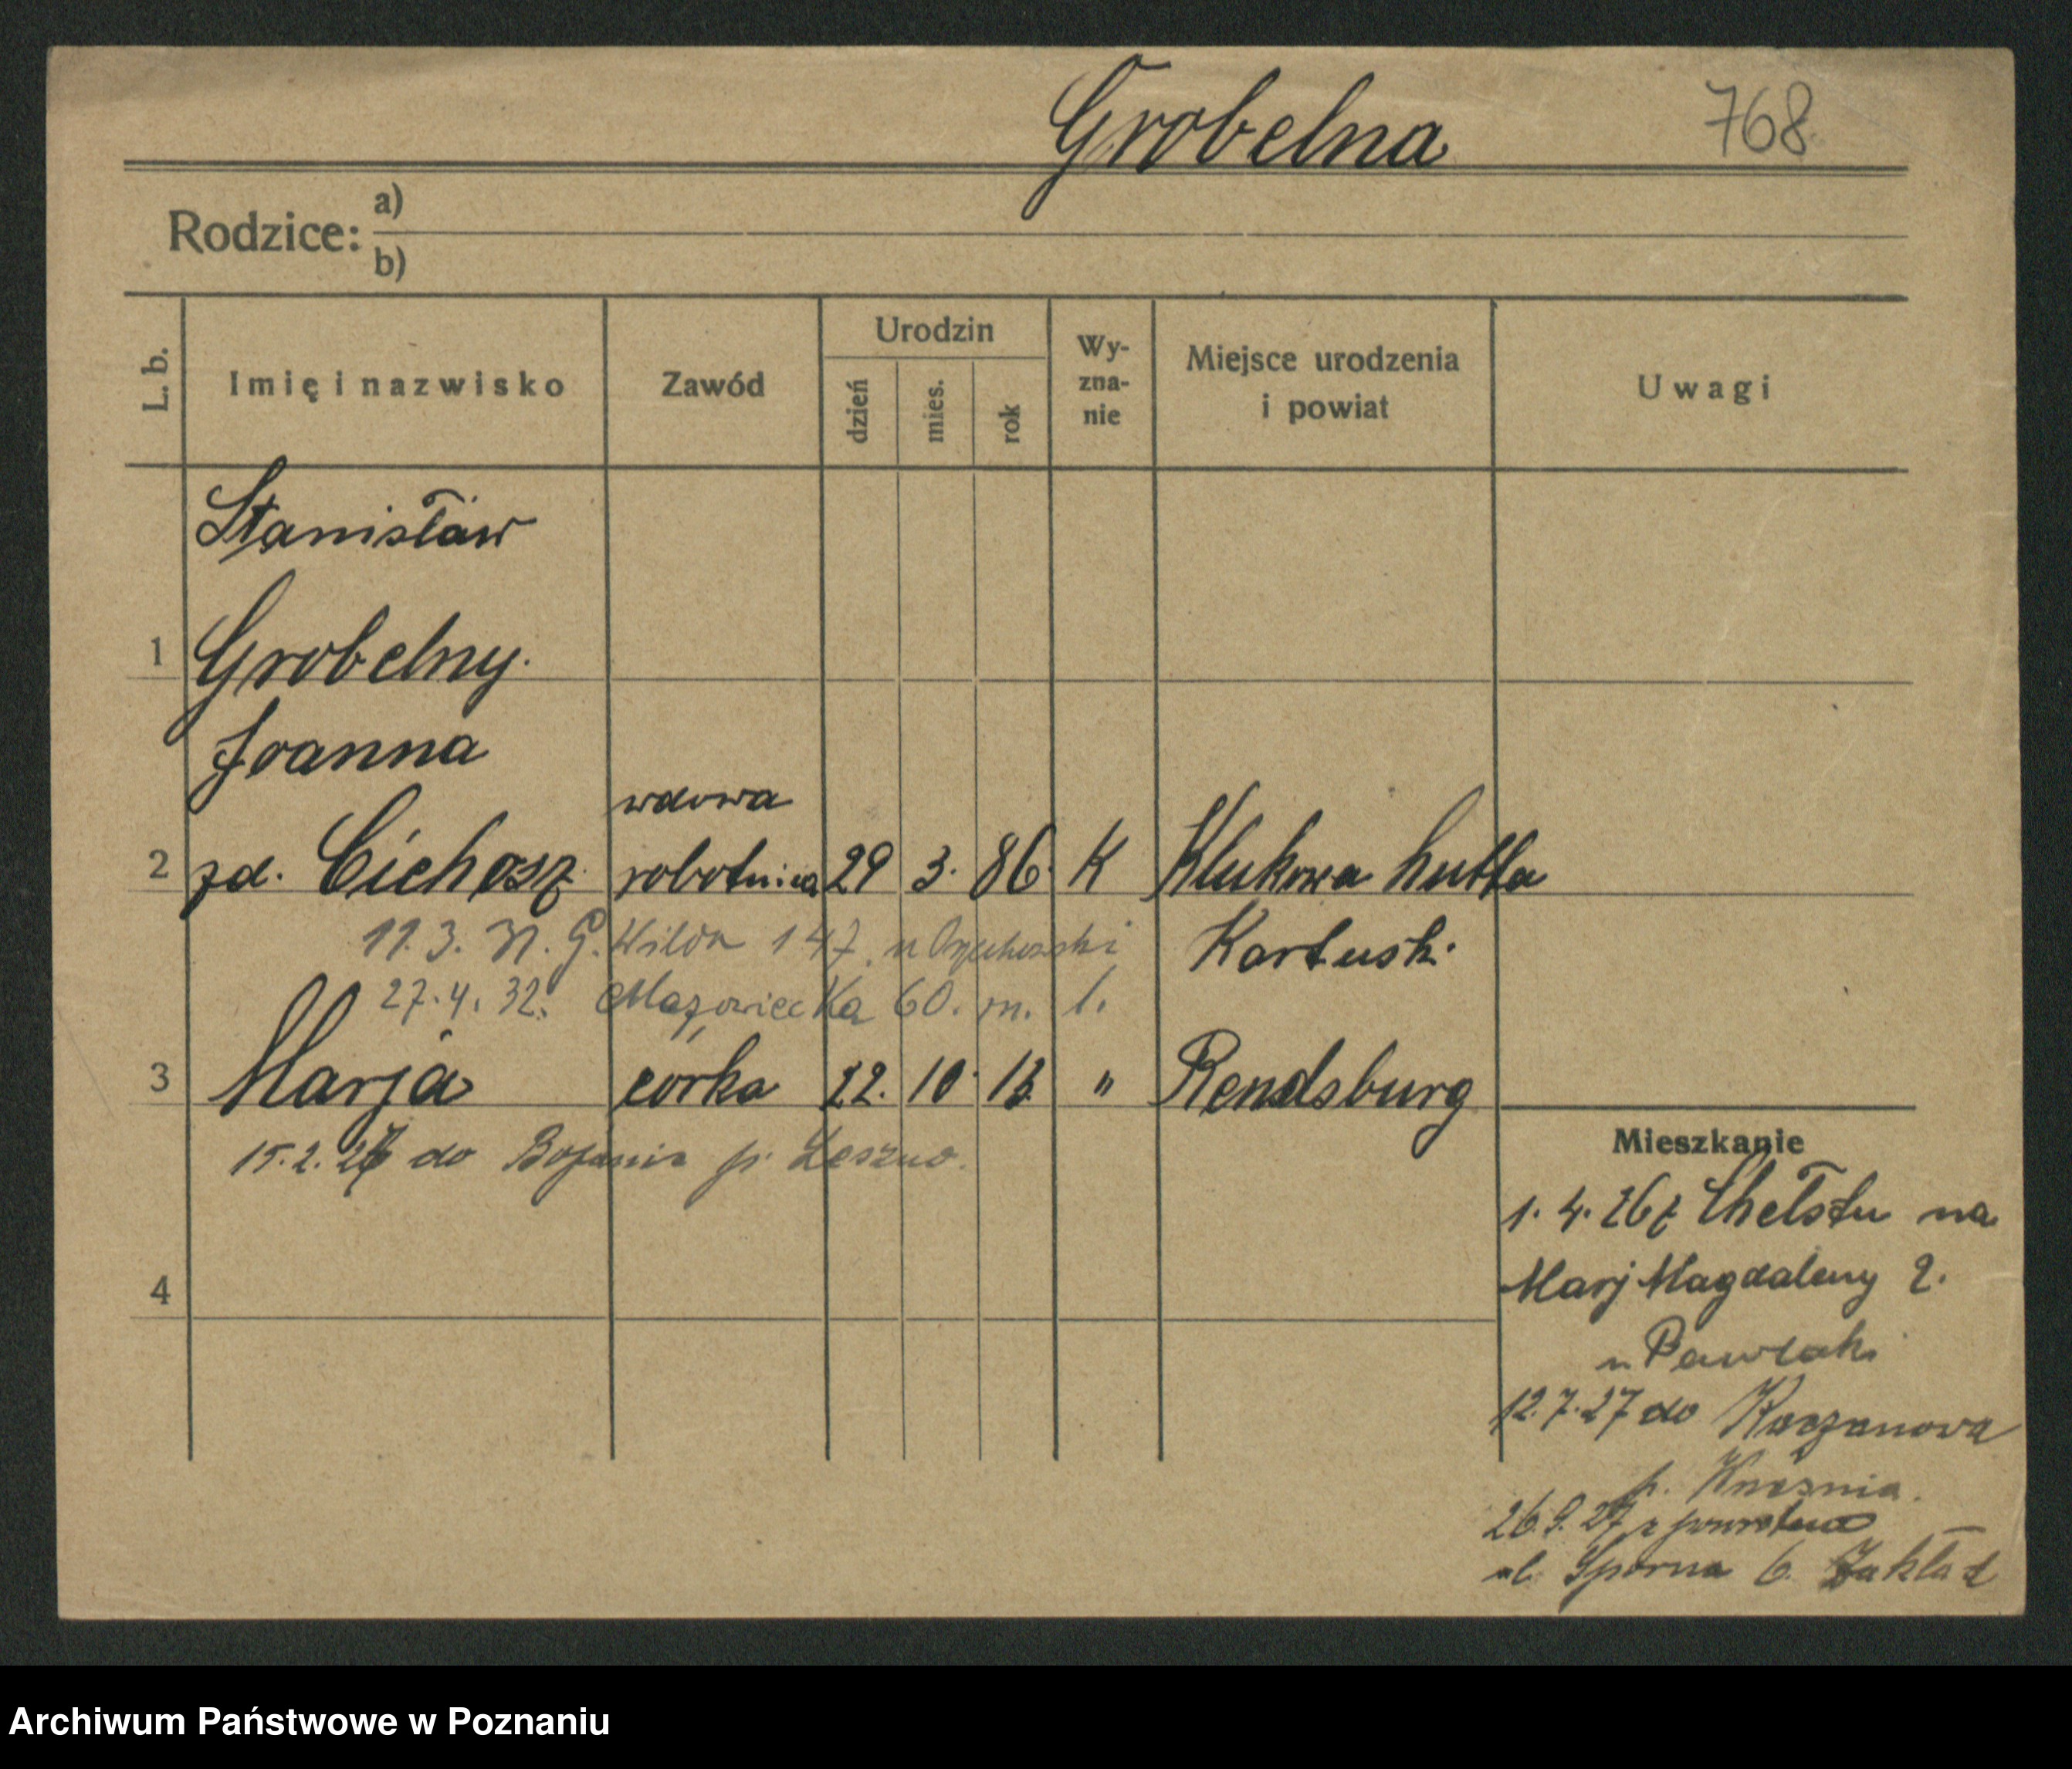 Grobelna 768.
Rodzice: a)
b)
L. b. Imię i nazwisko Zawód Urodzin dzień mies. rok Wy-zna-nie Miejsce urodzenia i powiat Uwagi
Stanisław
1 Grobelny.
Joanna
wdowa
2 zd. Cichosz robotnica 29 3. 86. K Klukowa hutta
11.3. 31. G. Wilda 147.
Kartuski.
27.4.32. Mazowiecka 60. m. 1.
3 Marja córka 22. 10. 13. " Rendsburg
15.2.27 do Bojania p. Leszno.
4
Mieszkanie
1.4.26 z Chełstu na
Marj Magdaleny 2.
u Pawlak
12.7.27 do
26.9.27 z powrotem
ul. Sporna 6. Zakład
Archiwum Państwowe w Poznaniu